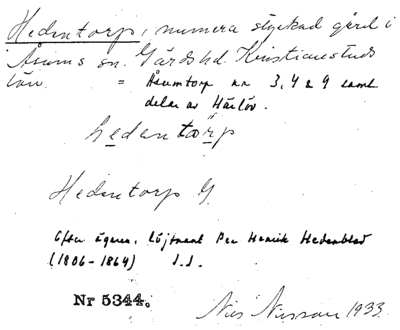 Hedentorp, numera styckad gård i
Åsums sn. Gärds hd. Kristianstads
län. = Åsumtorp nr 3, 4 & 9 samt
delar av Härlöv.
hedentårp
Hedentorp G.
Efter ägaren, löjtnant Per Henrik Hedenblad
(1806-1864)
Nr 5344.
Nils Nilsson 1933.